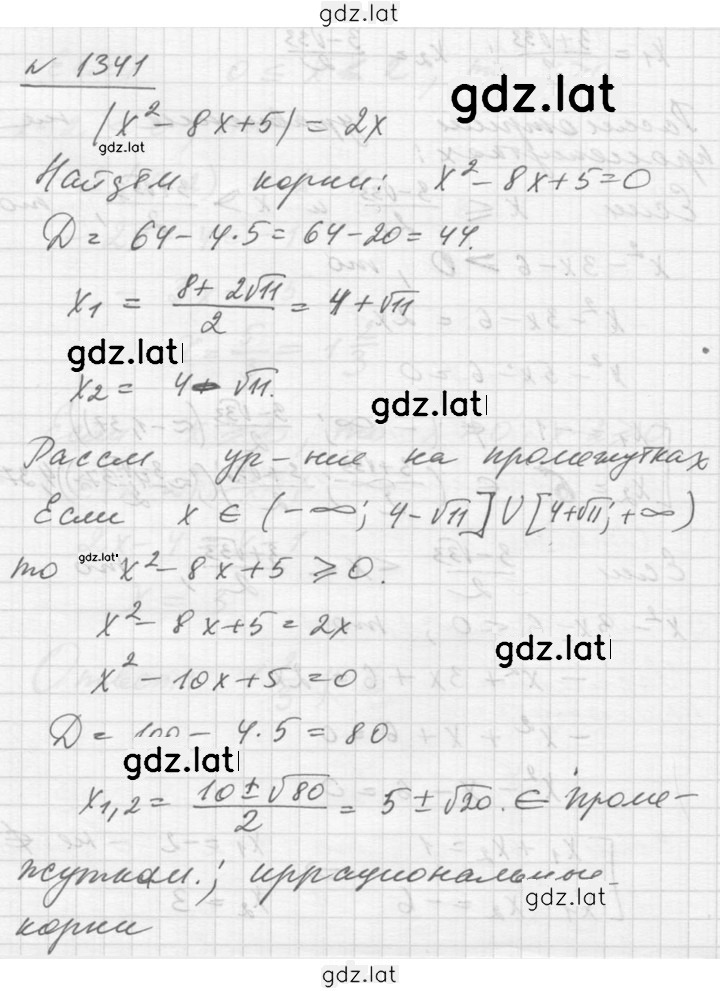 gdz.lat
№ 1341
gdz.lat
|x² - 8x + 5| = 2x
gdz.lat
Найдём корни: x² - 8x + 5 = 0
D = 64 - 4·5 = 64 - 20 = 44.
x₁ = (8 + 2√11)/2 = 4 + √11
gdz.lat
x₂ = 4 - √11.
gdz.lat
Рассм ур-ние на промежутках
Если x ∈ (-∞; 4-√11] ∪ [4+√11; +∞)
то gdz.lat x² - 8x + 5 ≥ 0.
x² - 8x + 5 = 2x
gdz.lat
x² - 10x + 5 = 0
D = 100 - 4·5 = 80
gdz.lat
x₁,₂ = (10 ± √80)/2 = 5 ± √20. ∈ проме-
жуткам.; иррациональные
gdz.lat
корни
gdz.lat